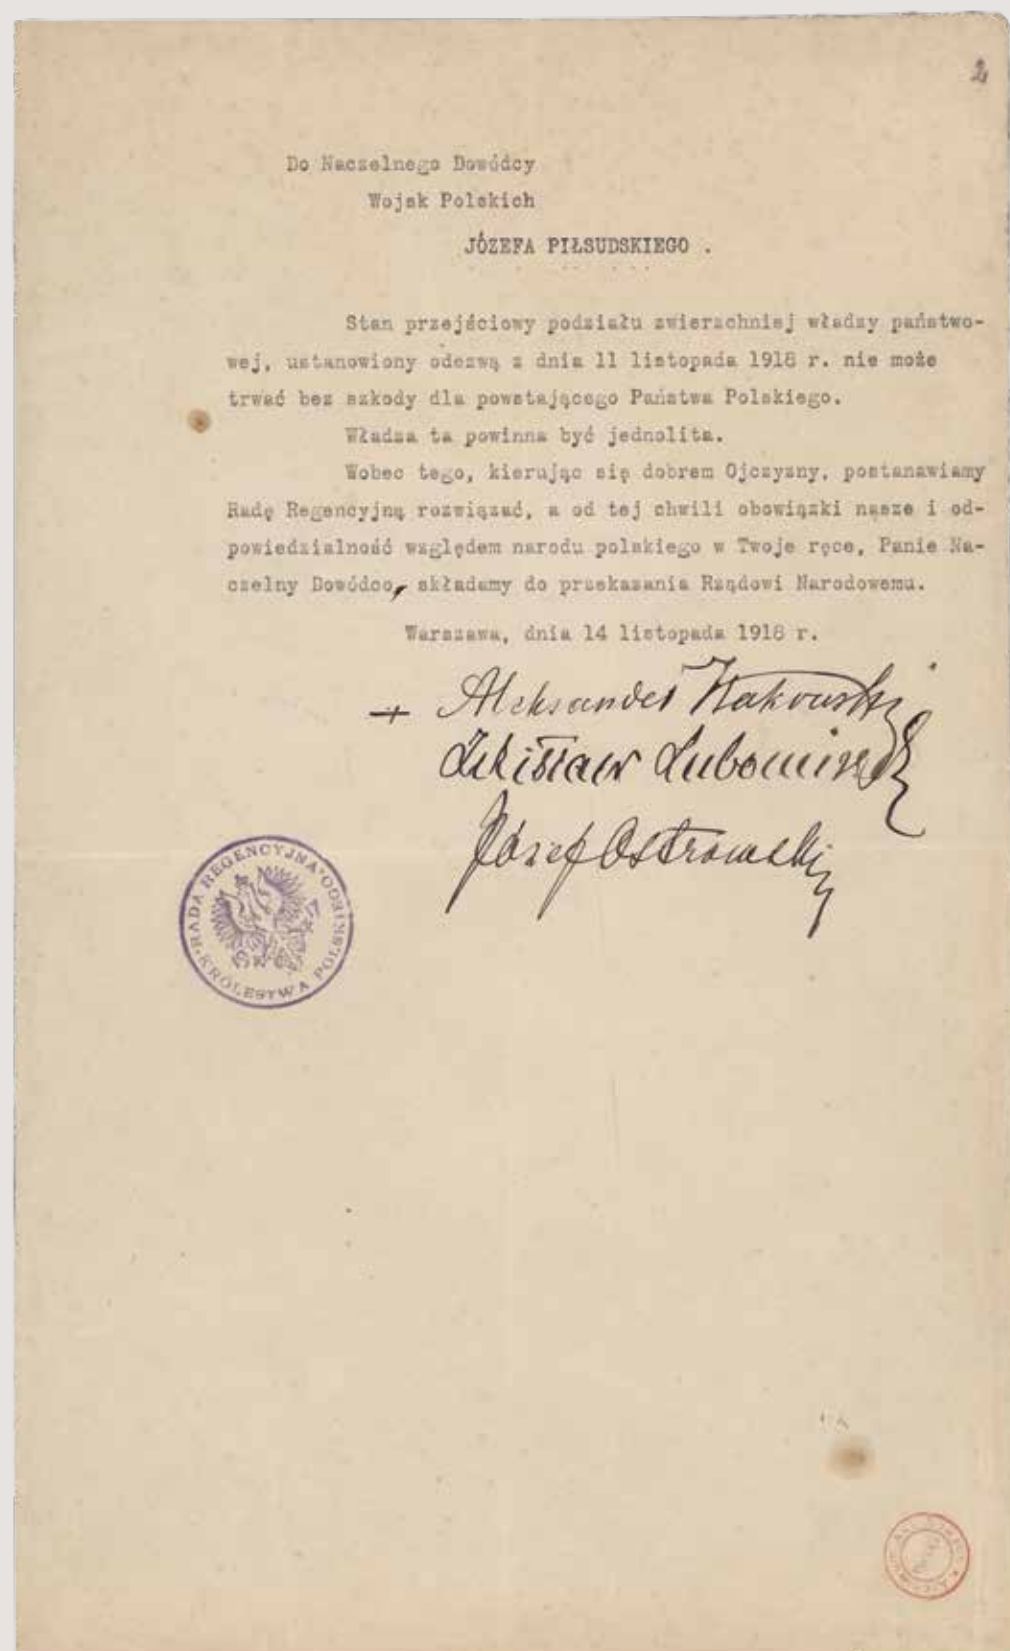 2
Do Naczelnego Dowódcy
Wojsk Polskich
JÓZEFA PIŁSUDSKIEGO .
Stan przejściowy podziału zwierzchniej władzy państwo-
wej, ustanowiony odezwą z dnia 11 listopada 1918 r. nie może
trwać bez szkody dla powstającego Państwa Polskiego.
Władza ta powinna być jednolita.
Wobec tego, kierując się dobrem Ojczyzny, postanawiamy
Radę Regencyjną rozwiązać, a od tej chwili obowiązki nasze i od-
powiedzialność względem narodu polskiego w Twoje ręce, Panie Na-
czelny Dowódco, składamy do przekazania Rządowi Narodowemu.
Warszawa, dnia 14 listopada 1918 r.
+ Aleksander Kakowski
Zdzisław Lubomirski
Józef Ostrowski
RADA REGENCYJNA
KRÓLESTWA POLSKIEGO